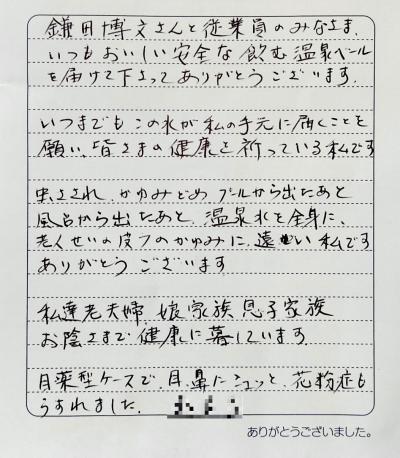 鎌田博文さんと従業員のみなさま、
いつもおいしい安全な飲む温泉ベール
を届けて下さってありがとうございます。
いつまでもこの水が私の手元に届くことを
願い、皆さまの健康を祈っている私です
虫さされ、かゆみどめ プールから出たあと
風呂から出たあと、温泉水を全身に、
老人せいの皮フのかゆみに、遠い私です
ありがとうございます
私達老夫婦 娘家族 息子家族
お陰さまで健康に暮しています
目薬型ケースで、目、鼻にシュッと、花粉症も
うすれました。
ありがとうございました。